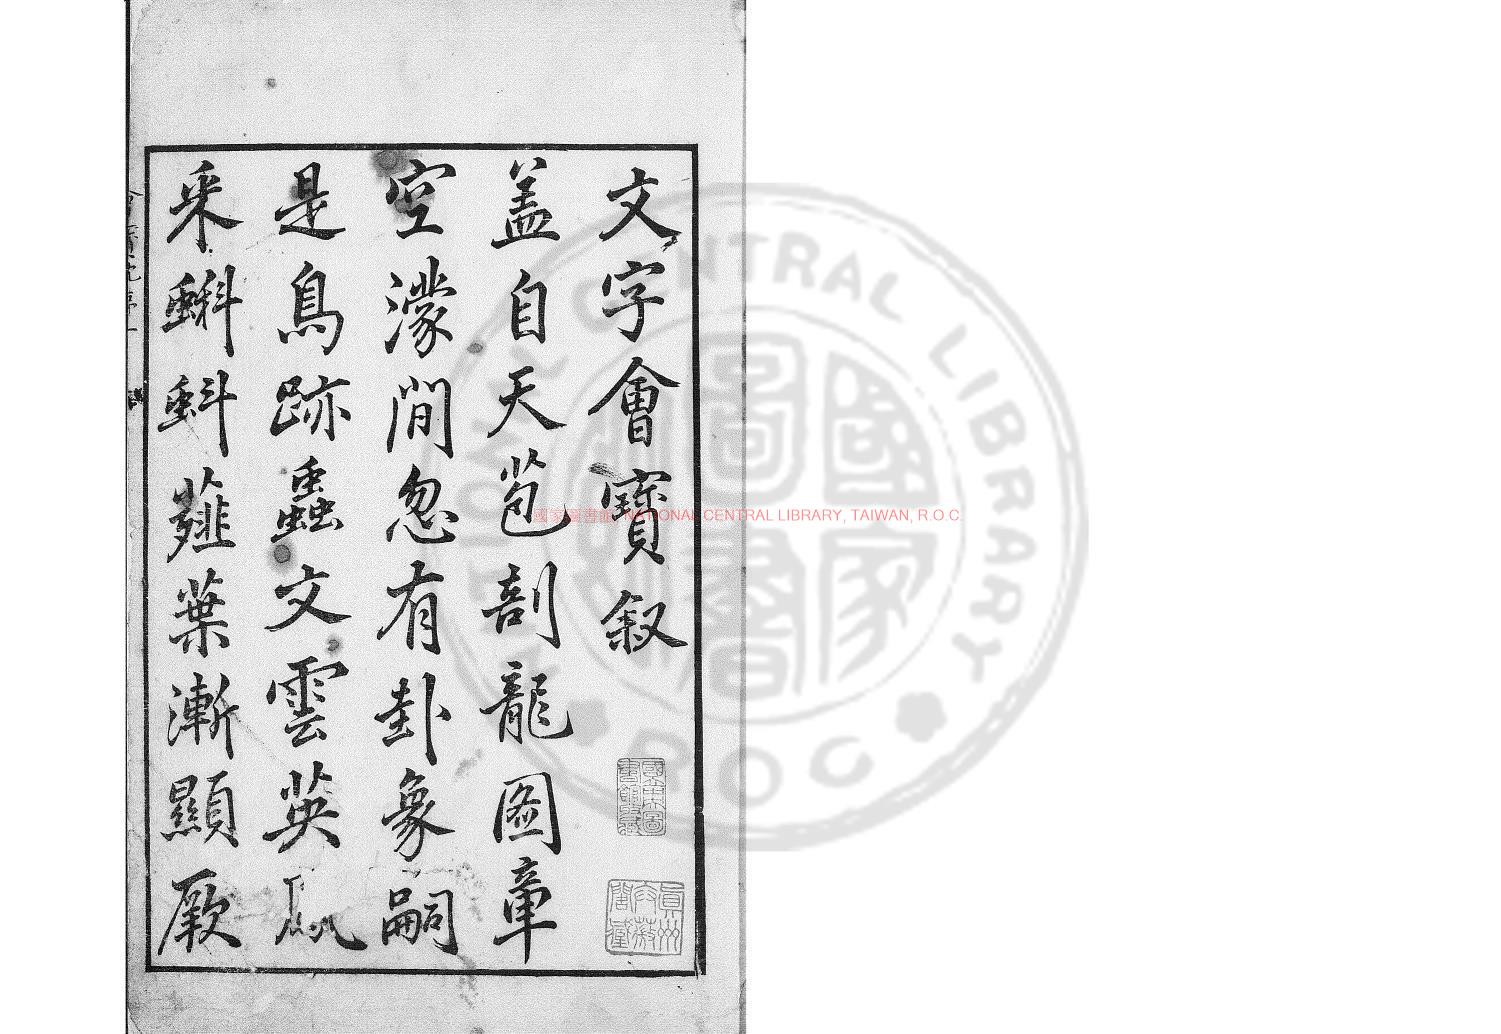 文字會寶叙
蓋自天苞剖龍圖章
空濛間忽有卦象嗣
是鳥跡蟲文雲英鳳
采蝌蚪薤葉漸顯厥
國家圖書館 NATIONAL CENTRAL LIBRARY, TAIWAN, R.O.C.
NATIONAL CENTRAL LIBRARY
ROC
國家圖書館